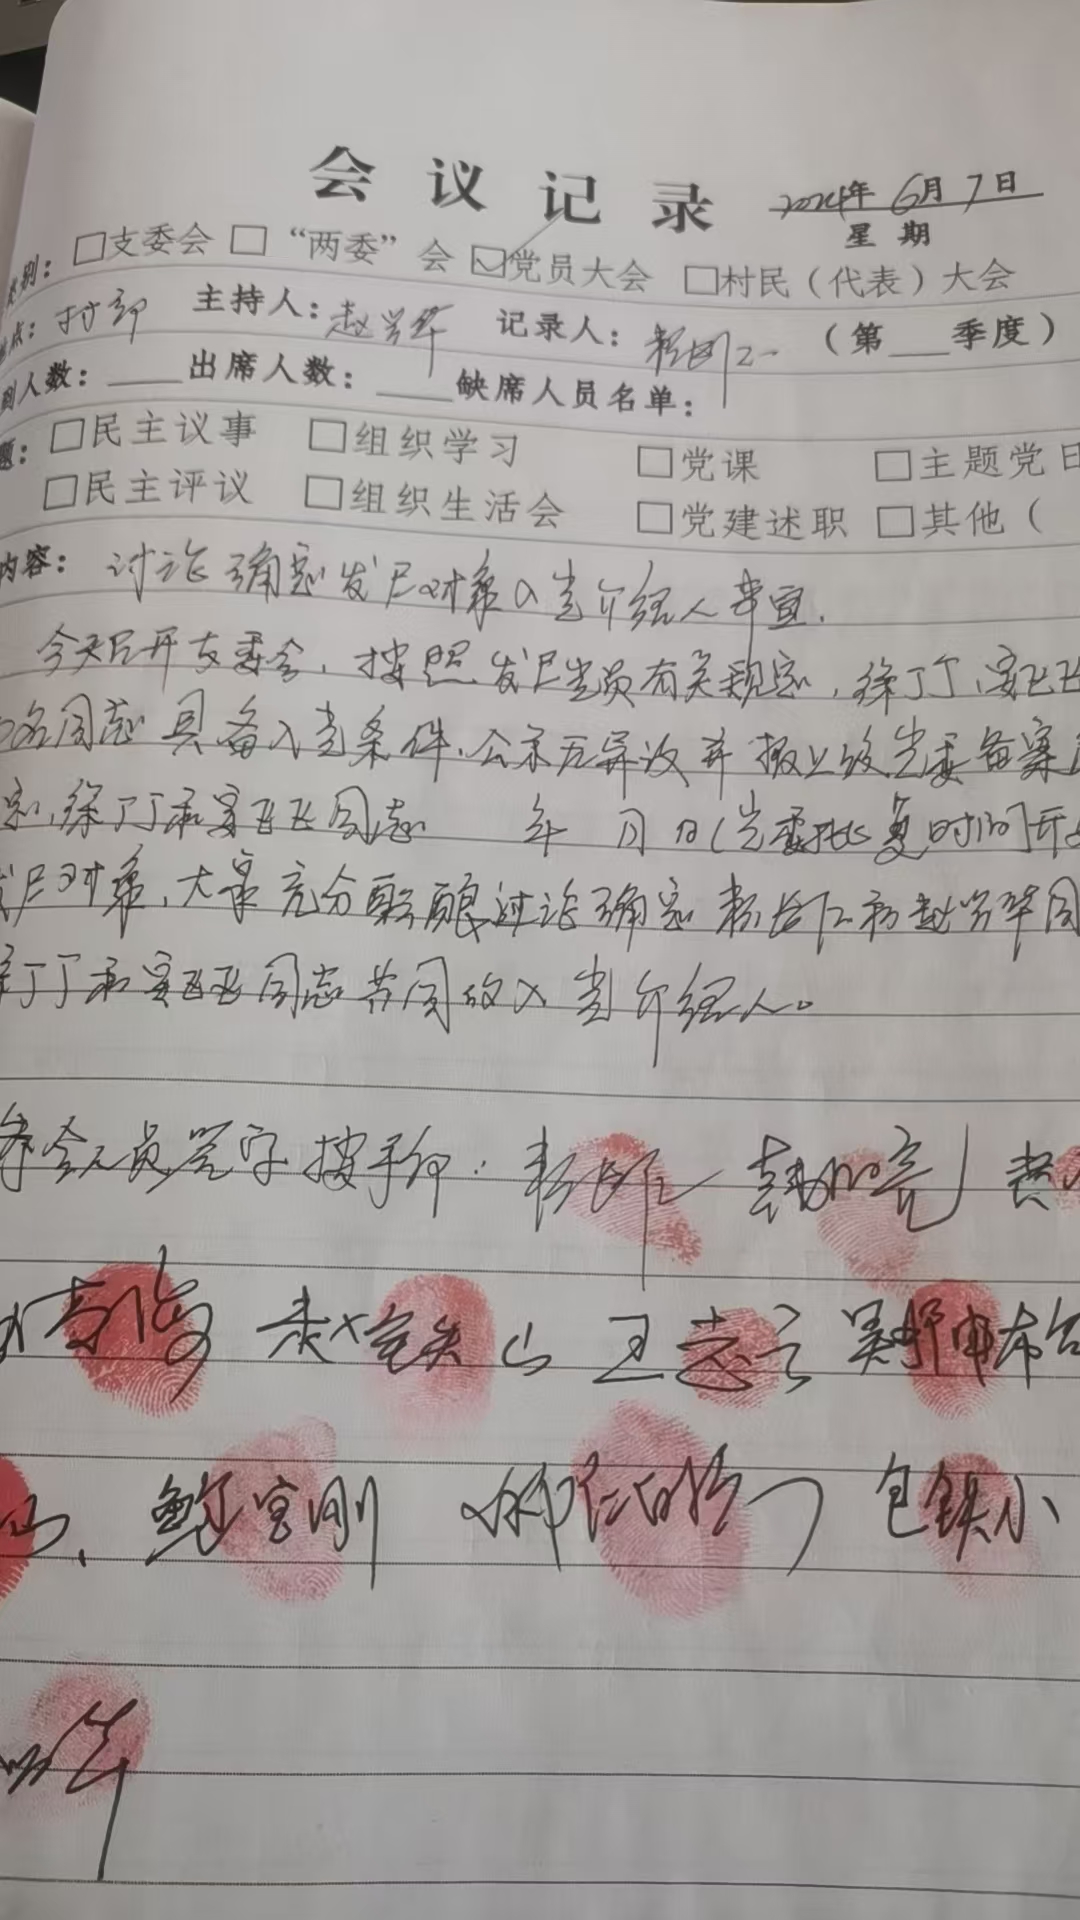 会议记录 2024年6月7日
星期
类别：□支委会 □“两委”会 ☑党员大会 □村民（代表）大会
地点：村部 主持人：赵兴华 记录人： （第 季度）
到人数： 出席人数： 缺席人员名单：
题：□民主议事 □组织学习 □党课 □主题党日
□民主评议 □组织生活会 □党建述职 □其他（
内容：讨论确定发展对象入党介绍人事宜.
今天召开支委会，按照发展党员有关规定，徐丁丁、宴飞飞
名同志具备入党条件，公示无异议并报上级党委备案
定，徐丁丁和宴飞飞同志 年 月 日（党委批复时间）开
发展对象，大家充分酝酿讨论确定 和赵兴华同
徐丁丁和宴飞飞同志共同的入党介绍人。
参会人员签字按手印： 韩晓亮
海 山 王志云
山、鲍宝刚 包铁小
华